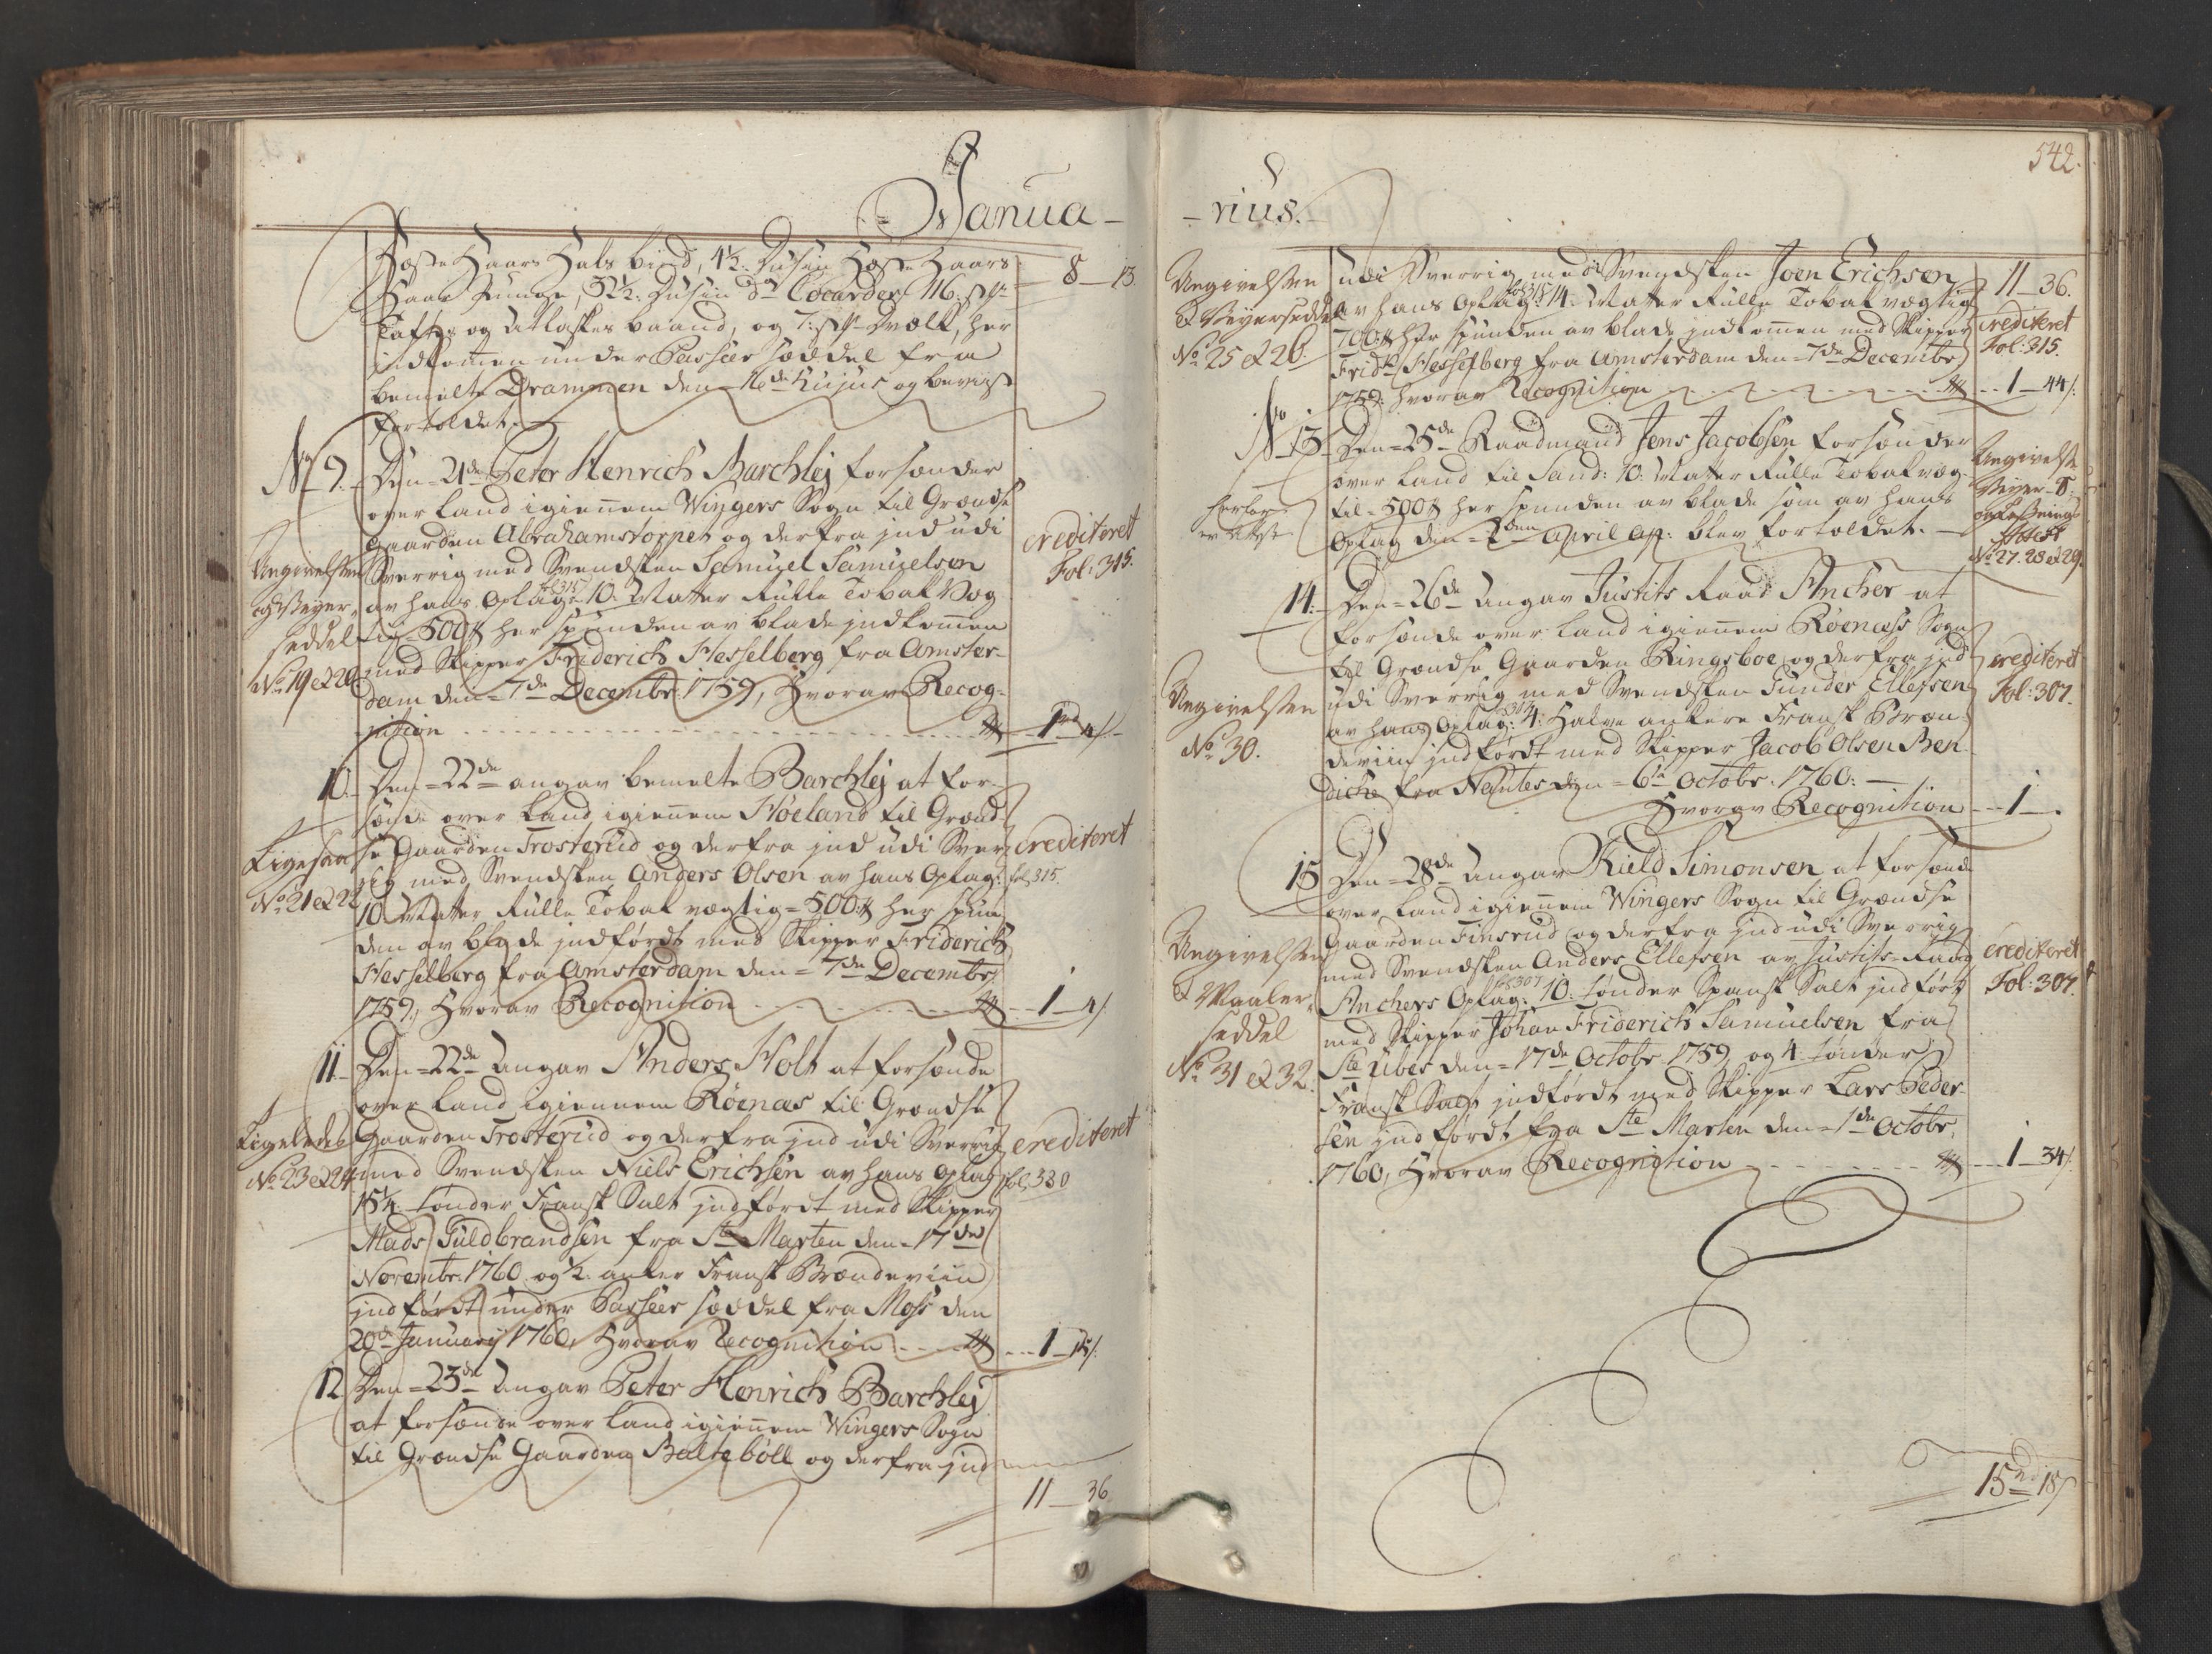 Janua-
Heste Haars Hals bind, 4½ Dusin Heste Haars
Haar Punge, 3½: Dusin do Cocarder 116: sk
Tafts og Atlaskes baand, og 7: sk Dvælk, her
indkommen under Passeer Sæddel fra
bemelte Drammen den 16de hujus og beviist
fortoldet.
8 - 13.
No 9. Den 21de Peter Henrich Barchlej forsænder
over Land igiennem Wingers Sogn til Grændse
Gaarden Abrahamstorpet og derfra ind udi
Sverrig med Svendsken Samuel Samuelson
av hans Oplag 10 Matter Rulle Tobak Væg-
tig 500 ℔ her spunden av blade indkommen
med Skipper Friderich Hesselberg fra Amster-
dam den 7de Decembr: 1759, Hvorav Recog-
nition 1 4/
Angivelsen
og Veyer
seddel
No 19 et 20
fol 315
crediteret
Fol: 315.
10. Den 22de angav bemelte Barchlej at for-
sænde over Land igiennem Høeland til Grænd-
se Gaarden Trosterud og derfra ind udi Sver-
rig med Svendsken Anders Olsen av hans Oplag:
10 Matter Rulle Tobak vægtig 500 ℔ her spun-
den av blade indført med Skipper Friderich
Hesselberg fra Amsterdam den 7de Decembr:
1759, Hvorav Recognition 1 - 4/
Ligesaa
No 21 et 22
crediteret
fol. 315.
11. Den 22de Angav Anders Holt at forsænde
over Land igiennem Röenæs til Grændse
Gaarden Trosterud og derfra ind udi Sverrig
med Svendsken Niels Erichsen av hans Oplag
15¼ Tønder Fransk Salt indført med Skipper
Mads Guldbrandsen fra Ste Marten den 17de
Novembr: 1760 og ½ anker Fransk Brændeviin
indført under Passeer sæddel fra Moss den
20de Januarij 1760, Hvorav Recognition 1 - 15/
Ligeledes
No 23 et 24
crediteret
fol: 330
12 Den 23de Angav Peter Henrich Barchlej
at forsænde over Land igiennem Wingers Sogn
til Grændse Gaarden Baltebøll og derfra ind
11 - 36
542.
-rius.
udi Sverrig med Svendsken Joen Erichsen
av hans Oplag: 14: Matter Rulle Tobak vægtig
700 ℔ her spunden av blade indkommen med Skipper
Fridr: Hesselberg fra Amsterdam den 7de Decembr:
1759: hvorav Recognition 1 - 44/.
Angivelsen
& Veyerseddel
No 25 et 26.
fol 315
11 - 36.
crediteret
Fol: 315.
No 13 Den 25de Raadmand Jens Jacobsen forsænder
over Land til Land: 10: Matter Rulle Tobak væg-
tig 500 ℔ her spunden av blade som av hans
Oplag den 2den April blev fortoldet.
Angivelse
Veyer-S:
Attest
No 27. 28 et 29.
14. Den 26de Angav Justits Raad Ancher at
forsænde over Land igiennem Röenæss Sogn
til Grændse Gaarden Ringsboe og derfra ind
udi Sverrig med Svendsken Gunder Ellefsen
av hans Oplag: 4: Halve ankere Fransk Bræn-
deviin indført med Skipper Jacob Olsen Ben-
diche fra Nantes den 6te Octobr. 1760:
Hvorav Recognition 1 - .
Angivelsen
No 30.
crediteret
Fol: 307.
15 Den 28de Angav Kield Simonsen at forsænde
over Land igiennem Wingers Sogn til Grændse
Gaarden Finsrud og derfra ind udi Sverrig
med Svendsken Anders Ellefsen av Justits-Raad
Anchers Oplag: 10: Tønder Spansk Salt indført
med Skipper Johan Friderich Samuelsen fra
Ste Ubes den 17de Octobr 1759, og 4 Tønder
Fransk Salt indført med Skipper Lars Peder-
sen ind ført fra Ste Marten den 1de Octobr:
1760, Hvorav Recognition 1 - 34/
Angivelsen
& Maaler
seddel
No 31 et 32.
fol 307
crediteret
Fol: 307.
15 18/